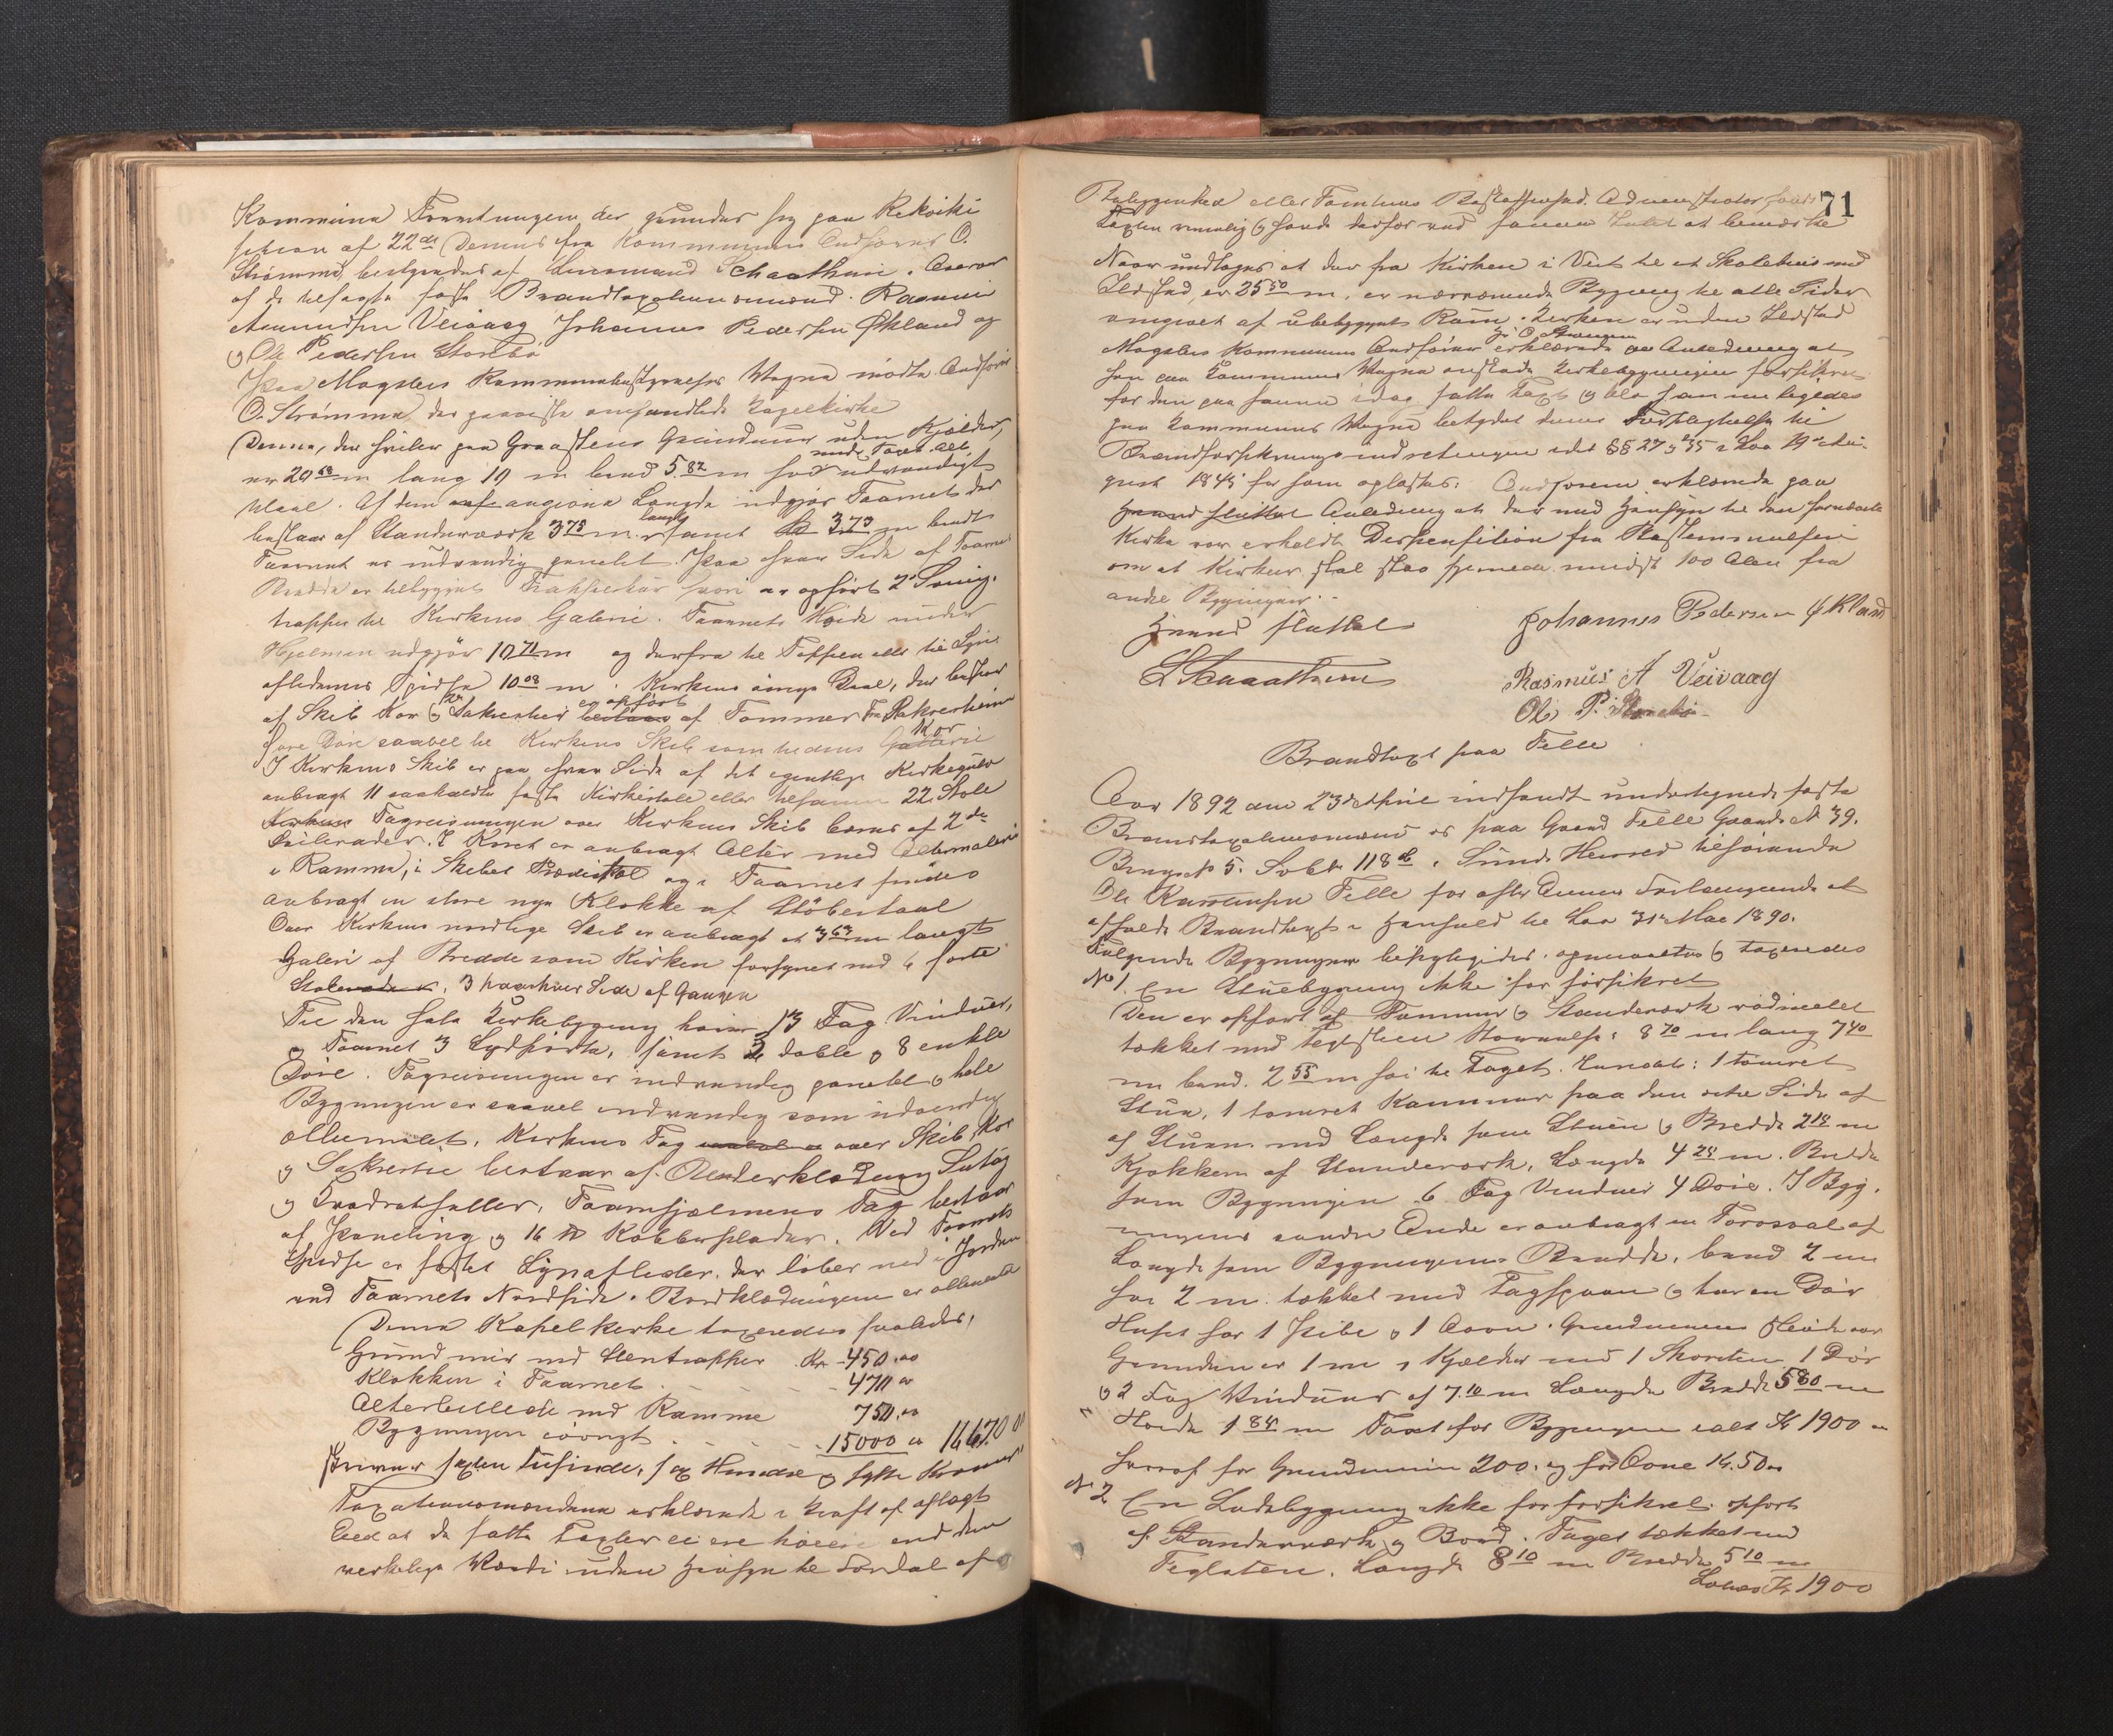 Kommune Forretningen der grunder sig paa Rekvisi
sition af 22de Dennes fra Kommunens Ordfører O.
Strømme, bestyredes af Lensmand Schaathun. Overvær
af de tilsagte faste Brandtaxationsmænd. Rasmus
Amundsen Veivaag Johannes Pedersen Økland og
og Ole Pedersen Storebø
Paa Mogsters Kommunebestyrelses Vegne mødte Ordfører
O. Strømme, der paaviste omhandlede Kapelkirke
Denne, der hviler paa Graastens Grundmur uden Kjelder,
under Taget alt
er 20 68 m lang 10 m bred 5.82 m høi udvendigt
Maal. Af den angivne Længde udgjør Taarnets der
bestaar af Standerværk 3 75 m. langt samt 3 73 m bredt
Taarnet er indvendig panelet. Paa hver Side af Taarnets
Bredde er tilbygget Trappeskur hvori er opført 2 Sving-
trapper til Kirkens Galeri. Taarnets Høide under
Hjelmen udgjør 10 71 m og derfra til Toppen eller til Lyn
aflederens Spidse 10 08 m. Kirkens øvrige Deel, der bestaar
er opført
af Skib Kor og Sakresti bestaar af Tømmer Fra Sakrestiet
Kor
føre Døre saavel til Kirkens Skib som til dens Galleri
I Kirkens Skib er paa hver Side af det egentlige Kirkegulv
anbragt 11 saakaldte faste Kirkestole eller tilsammen 22 Stole
Kirkens Tagreisningen over Kirkens Skib bæres af 2 de
Pillerader. I Koret er anbragt Alter med Altermaleri
i Ramme, i Skibet Prædikestol og i Taarnet findes
anbragt en stor nye Klokke af Støbestaal
Over Kirkens nordlige Skib er anbragt et 3 63 m langt
Galeri af Bredde som Kirken forsynet med 6 faste
Stolerader, 3 paa hver Side af Gangen
Til den hele Kirkebygning hører 13 Fag Vinduer,
og Taarnet 3 Lydporte, samt 3 doble og 8 enkle
Døre. Tagreisningen er indvendig panelet og hele
Bygningen er saavel indvendig som udvendig
oliemalet. Kirkens Tag over Skib, Kor
og Sakresti bestaar af Underklædning Sutag
og Kvadratheller, Taarnhjelmens Tag bestaar
af Paneling og 16 Kobberplader. Ved Taarnets
Spidse er fæstet Lynafleder, der løber ned i Jorden
ved Taarnets Nordside. Bordklædningen er oliemalt
Denne Kapelkirke taxeredes saaledes,
Grundmur med Stentrapper Kr. 450.00
Klokken i Taarnet - - - - 470 00
Alterbillede med Ramme 750.00
Bygningen iøvrigt - - - - 15000 00 16670 00
skriver sexten tusinde, sex Hundrede og sytti Kroner
Taxationsmændene erklærede i Kraft af aflagt
Eed at de satte Taxter ei ere høiere end den
verkelige Værdi uden Hensyn til Fordel af
71
Beliggenhed eller Tomtens Beskaffenhed. Administrator fandt
Taxten rimelig og havde derfor ved samme Intet at bemærke
Naar undtages at der fra Kirken i Vest til et Skolehus med
Ildsted er 25 50 m, er nærværende Bygning til alle Sider
omgivet af ubebygget Rum. Kirken er uden Ildsted
Hr. O. Strømme
Mogsters Kommunes Ordfører erklærede paa Anledning at
han paa Kommunens Vegne ønskede Kirkebygningen forsikret
for den paa samme idag satte Taxt og blev han unægtedes
paa Kommunens Vegne betydet dennes Forpligtelse til
Brandforsikringsindretningen idet §§ 27 og 35 i Lov 19 de Au-
gust 1845 for ham oplæstes. Ordføreren erklærede paa
Anledning at der med Hensyn til den fornævnte
Kirke var erholdt Dispensation fra Bestemmelsen
om at Kirker skal staa fjernede mindst 100 Alen fra
andre Bygninger.-
Johannes Pedersen Økland
L Schaathun
Rasmus A Veivaag
Ole P. Storebø
Brandtaxt paa Felle
Aar 1892 den 23de April indfandt undertegnede faste
Brandtaxationsmænd os paa Gaard Felle Gaards No 39.
Brugs No 5. Løb No 118 b. Sunds Herred tilhørende
Ole Rasmussen Felle for efter Dennes Forlangende at
afholde Brandtaxt i Henhold til Lov 31te Mai 1890.
Følgende Bygninger besigtigedes, opmaaltes og taxeredes
No 1. En Stuebygning ikke før forsikret
Den er opført af Tømmer og Standerværk rødmalet
tækket med teglsteen Størrelse: 8 70 m lang 7 40
m bred. 2 55 m høi til Taget. Inredet: 1 tømret
Stue, 1 tømret Kammer paa den østre Side af
af Stuen med Længde som Stuen og Bredde 2 10 m
Kjøkken af Standerværk, Længde 4 25 m. Bredde
som Bygningen 6 Fag Vinduer 4 Døre. I Byg.
ningens søndre Ende er anbragt en Torvsval af
Længde som Bygningens Bredde, bred 2 m
høi 2 m. tækket med Tagspaan og har en Dør
Huset har 1 Pibe og 1 Ovn. Grundmurens Høide over
Grunden er 1 m, Kjelder med 1 Skorsten 1 Dør
og 2 Fag Vinduer af 7.10 m Længde Bredde 5 80 m
Høide 1 85 m Taxt for Bygningen ialt Kr 1900 00
hvoraf for Grundmuren 200. og for Ovne 14.50.
No 2 En Ladebygning ikke før forsikret. opført
af Standerværk og Bord. Taget tækket med
Teglsten. Længde 8 10 m Bredde 5 10 m
Lateres Kr 1900